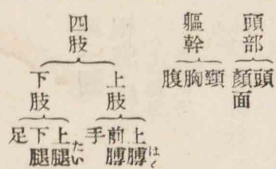 頭部
頭
顏面
軀幹
頸
胸
腹
四肢
上肢
上膊はく
前膊
手
下肢
上腿たい
下腿
足